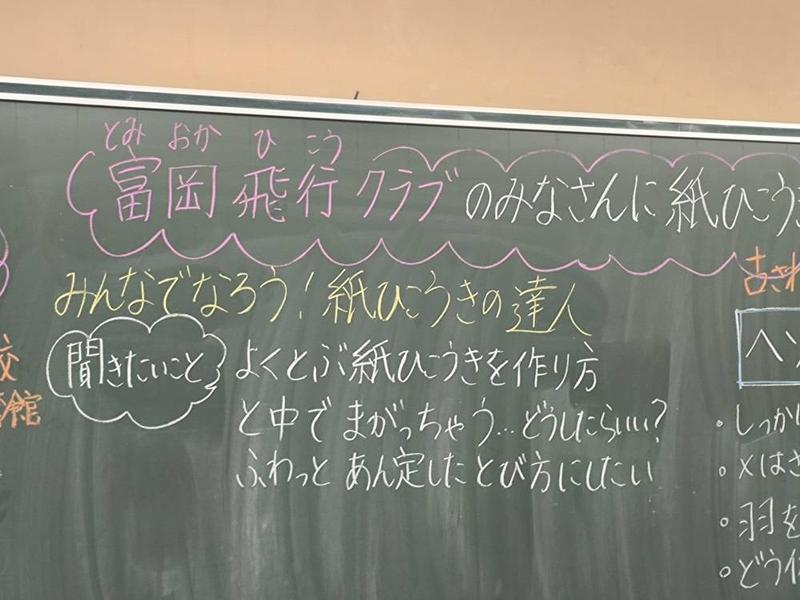 とみ おか ひ こう
富岡飛行クラブのみなさんに紙ひこうき
みんなでなろう！紙ひこうきの達人
聞きたいこと
よくとぶ紙ひこうきを作り方
と中でまがっちゃう…どうしたらいい？
ふわっとあん定したとび方にしたい
校
館
古きれ
・しっか
・メはさ
・羽を
・どう